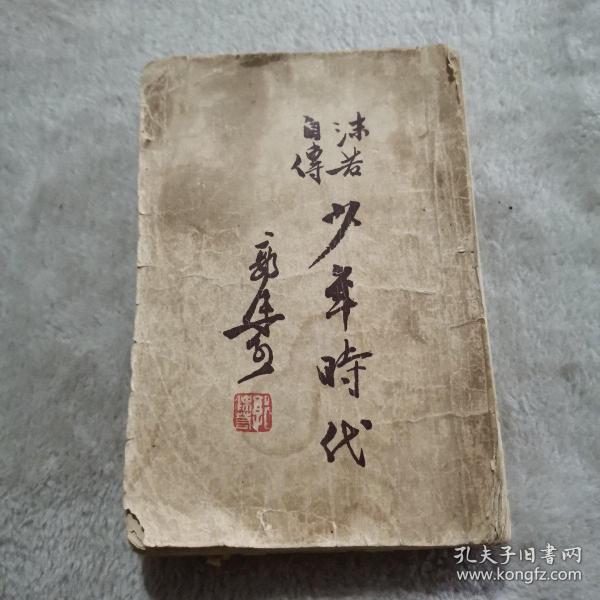 沫若
自傳
少年時代
郭沫若
孔夫子旧書网
www.kongfz.com